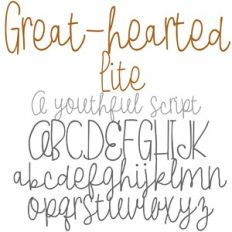 Great-hearted
Lite
A youthful script
ABCDEFGHIJK
abcdefghijklmn
opqrstuvwxyz